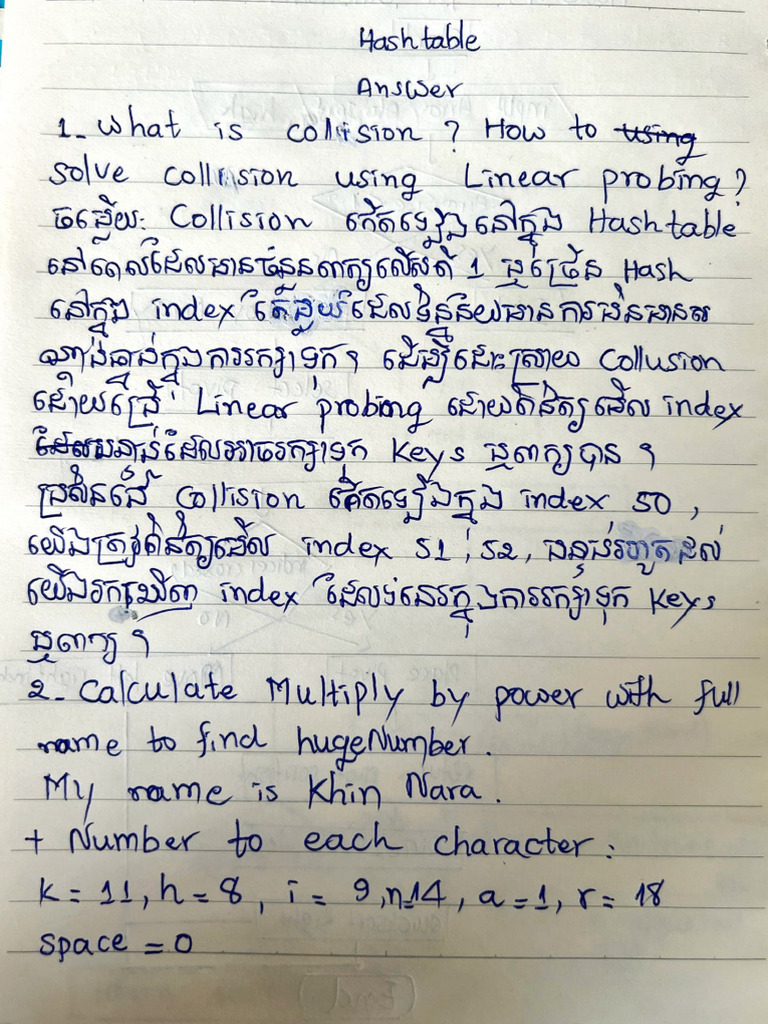 Hashtable
Answer
1- What is colision ? How to using
solve collision using Linear probing ?
ចម្លើយ: Collision កើតឡើងនៅក្នុង Hashtable
នៅពេលដែលមានចំនួនពាក្យលើសពី 1 ឬច្រើន Hash
នៅក្នុង index តែមួយ ដែលទិន្នន័យមានការ
ក្នុងការរក្សាទុក។ ដើម្បីដោះស្រាយ Collusion
ដោយប្រើ Linear probing ដោយពិនិត្យមើល index
ដែលអាចរក្សាទុក Keys ឬពាក្យបាន ។
ប្រសិនបើ Collision កើតឡើងក្នុង index 50 ,
យើងត្រូវពិនិត្យមើល index 51 , 52 , បន្ទប់រហូតដល់
យើងរកឃើញ index ដែលទំនេរក្នុងការរក្សាទុក Keys
ឬពាក្យ ។
2- Calculate Multiply by power with full
name to find hugeNumber .
My name is Khin Nara .
+ Number to each character :
k = 11 , h = 8 , i = 9 , n=14 , a = 1 , r = 18
space = 0